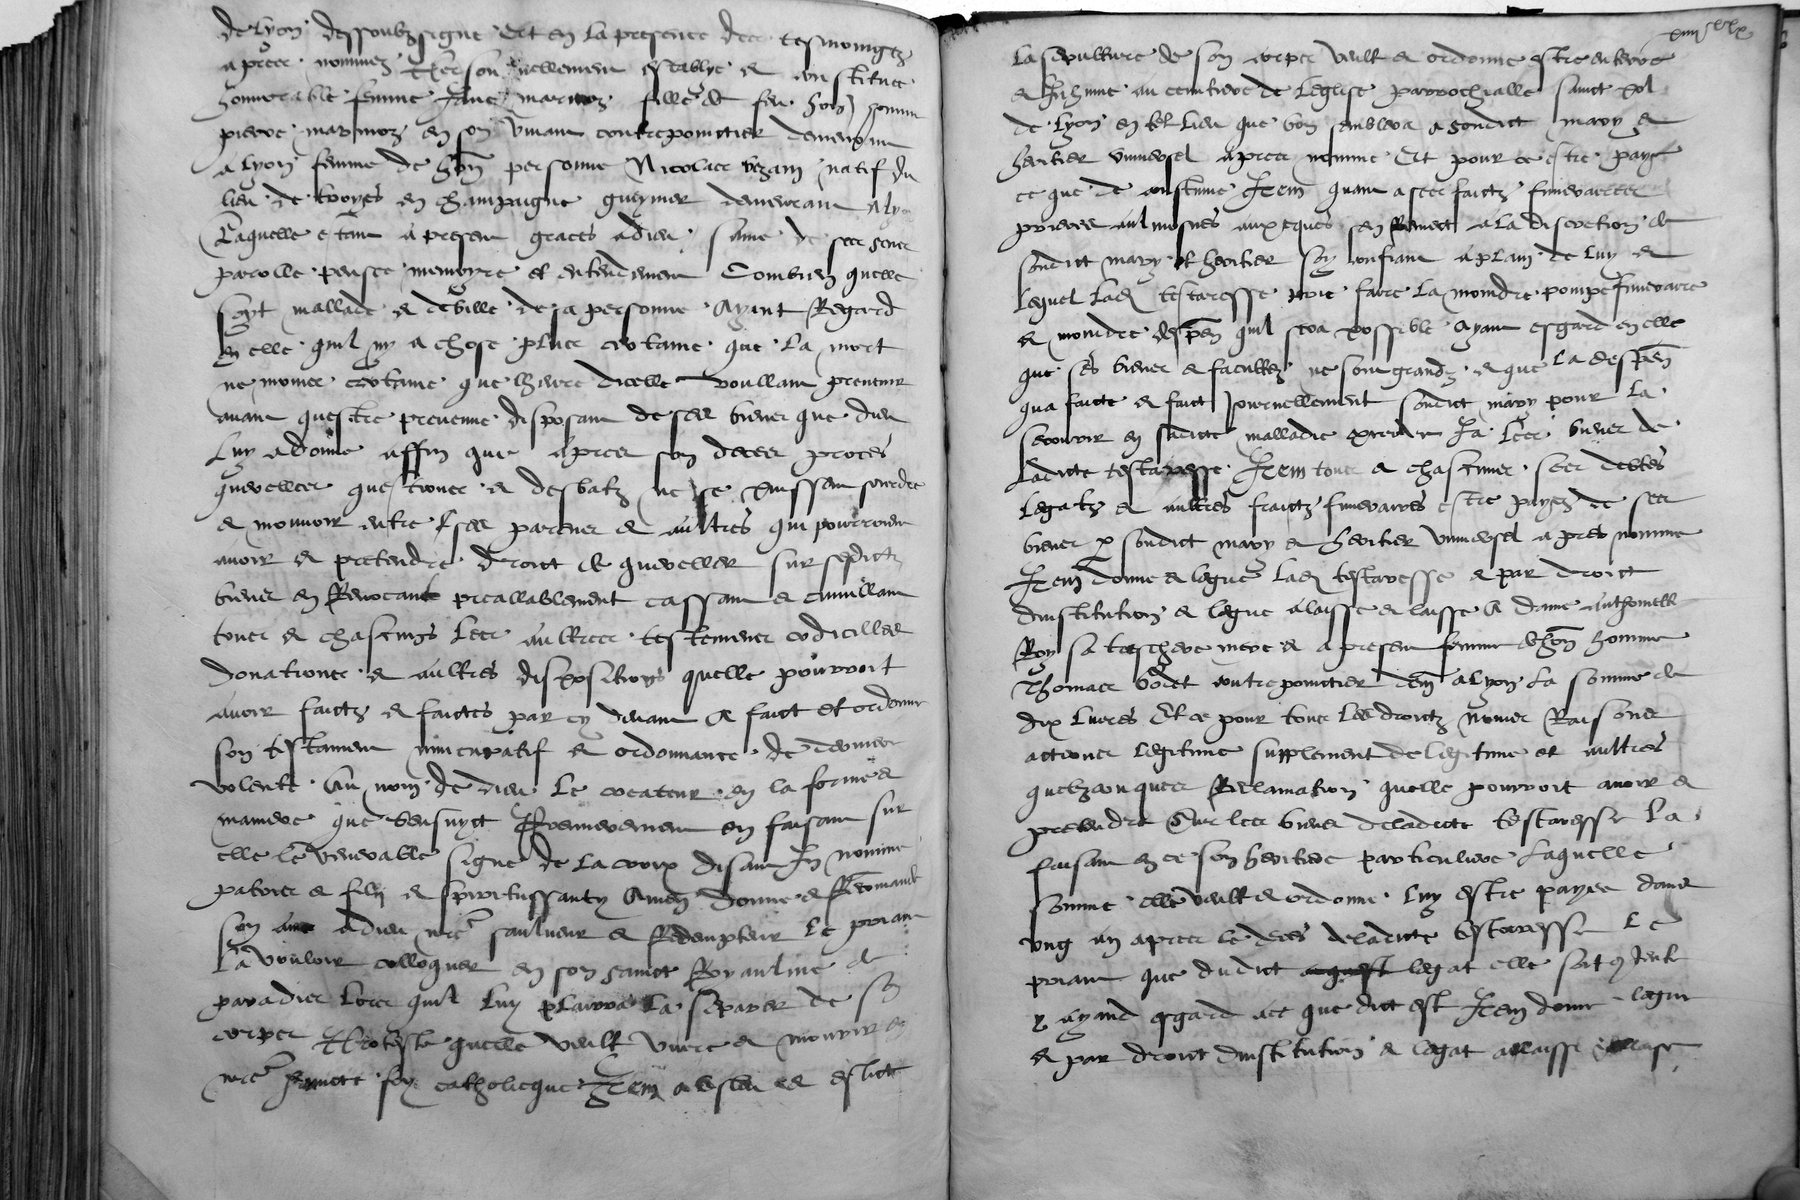 de Lyon dessoubzsigne Et en la presence des tesmoingtz
apres nommez Personnellement establye et constitue
honnorable femme Jane marmoz fille de feu hon homme
pierre marmoz en son vivant contrepoinctier demeurant
a Lyon femme de hon personne Nicolas natif du
lieu de troyes en champaigne demeurant a Lyon
Laquelle estant a present graces a dieu saine de ses sens
parolle pensee memoyre et entendement Combien quelle
soyt mallade et debille de sa personne Ayant Regard
en elle quil ny a chose plus certaine que La mort
ne moings certaine que lheure dicelle voullant prevenir
avant questre prevenue disposant de ses biens que dieu
Luy a donne affin que apres son deces proces
querelles questions et desbatz ne se puissent sourdre
et mouvoir entre ses parens et aultres qui pourroient
avoir et pretendre droict et quereller sur sesdictz
biens en Revocant preallablement cassant et annullant
tous et chascungs Les aultres testamens codicilles
donations et aultres dispositions quelle pourroit
avoir faictz et faictes par cy devant A faict et ordonne
son testament nuncupatif et ordonnance de derniere
volente Au nom de dieu le createur en la forme et
maniere que sensuyct Premierement en faisant sur
elle le venerable signe de la croix disant In nomine
patris et filij et spiritussancty Amen donne et Recomande
son ame a dieu nre saulveur et Redempteur Le priant
La vouloir colloquer en son sainct Royaulme de
paradis Lors quil luy plairra La separer de son
corps Proteste quelle veult vivre et mourir en
nre saincte foy catholicque Item a esleu et eslict
La sepulture de son corps veult et ordonne estre enterre
et Inhume au cemitiere de Leglise parrochialle sainct pol
de Lyon en tel lieu que bon semblera a sondict mary et
heritier universel apres nomme Et pour ce estre paye
ce que de coustume Item quant a ses faictz funeraires
prieres aulmosnes sen Remect a la discretion de
sondict mary et heritier soy confiant a plain de luy et
Lequel Lad testaresse prie faire La moindre pompe funeraire
et moindre despen quil sera possible ayant esgard en elle
que ses biens et facultez ne sont grandz et que la despen
qua faicte et faict journellement sondict mary pour La
secourir en sadicte malladie excede Ja Les biens de
Ladicte testaresse Item tous et chascuns ses debtes
Legatz et aultres fraictz funeraires estre payez de ses
biens p sondict mary et heritier universel apres nomme
Item donne et legue Lad testaresse et par droict
dinstitution et legue a laisse et laisse A dame anthoinette
Roy sa treschere mere et a present femme de hon homme
Thomas contrepoinctier dem a Lyon La somme de
dix livres Et ce pour tous les droictz noms Raisons
actions legitime supplement de legitime et aultres
quelzconques Reclamation quelle pourroit avoir et
pretendre Sur les biens de ladicte testaresse La
faisant en ce son heritiere particuliere Laquelle
somme elle veult et ordonne Luy estre payee dans
ung an apres le deces deladicte testaresse Le
priant que dudict legat elle soit contente
ayand esgard ace que dict est Item donne legue
et par droict dinstitution et legat a laisse et laisse